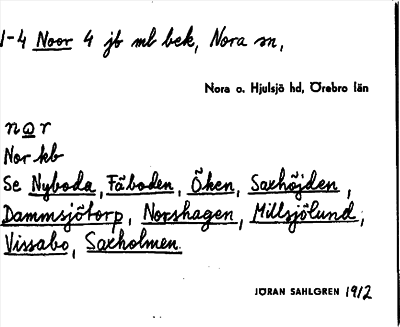 1-4 Noor 4 jb ml bek, Nora sn,
Nora o. Hjulsjö hd, Örebro län
nor
Nor kb
Se Nyboda, Fäboden, Öken, Saxhöjden,
Dammsjötorp, Norshagen, Millsjölund,
Vissabo, Saxholmen.
JÖRAN SAHLGREN 1912